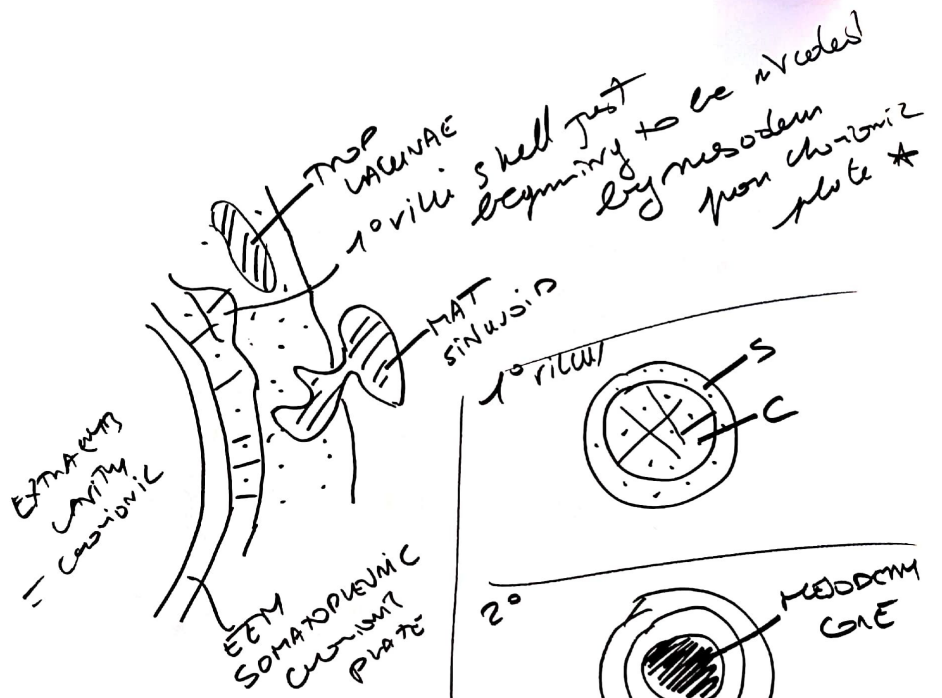 TROP
LACUNAE
1° villi shell just
beginning to be invaded
by mesoderm
from chorionic
plate *
MAT
SINUSOID
EXTRAEMB
CAVITY
= CHORIONIC
EEM
SOMATOPLEURIC
CHORIONIC
PLATE
1° villus
S
C
2°
MESODERM
CORE